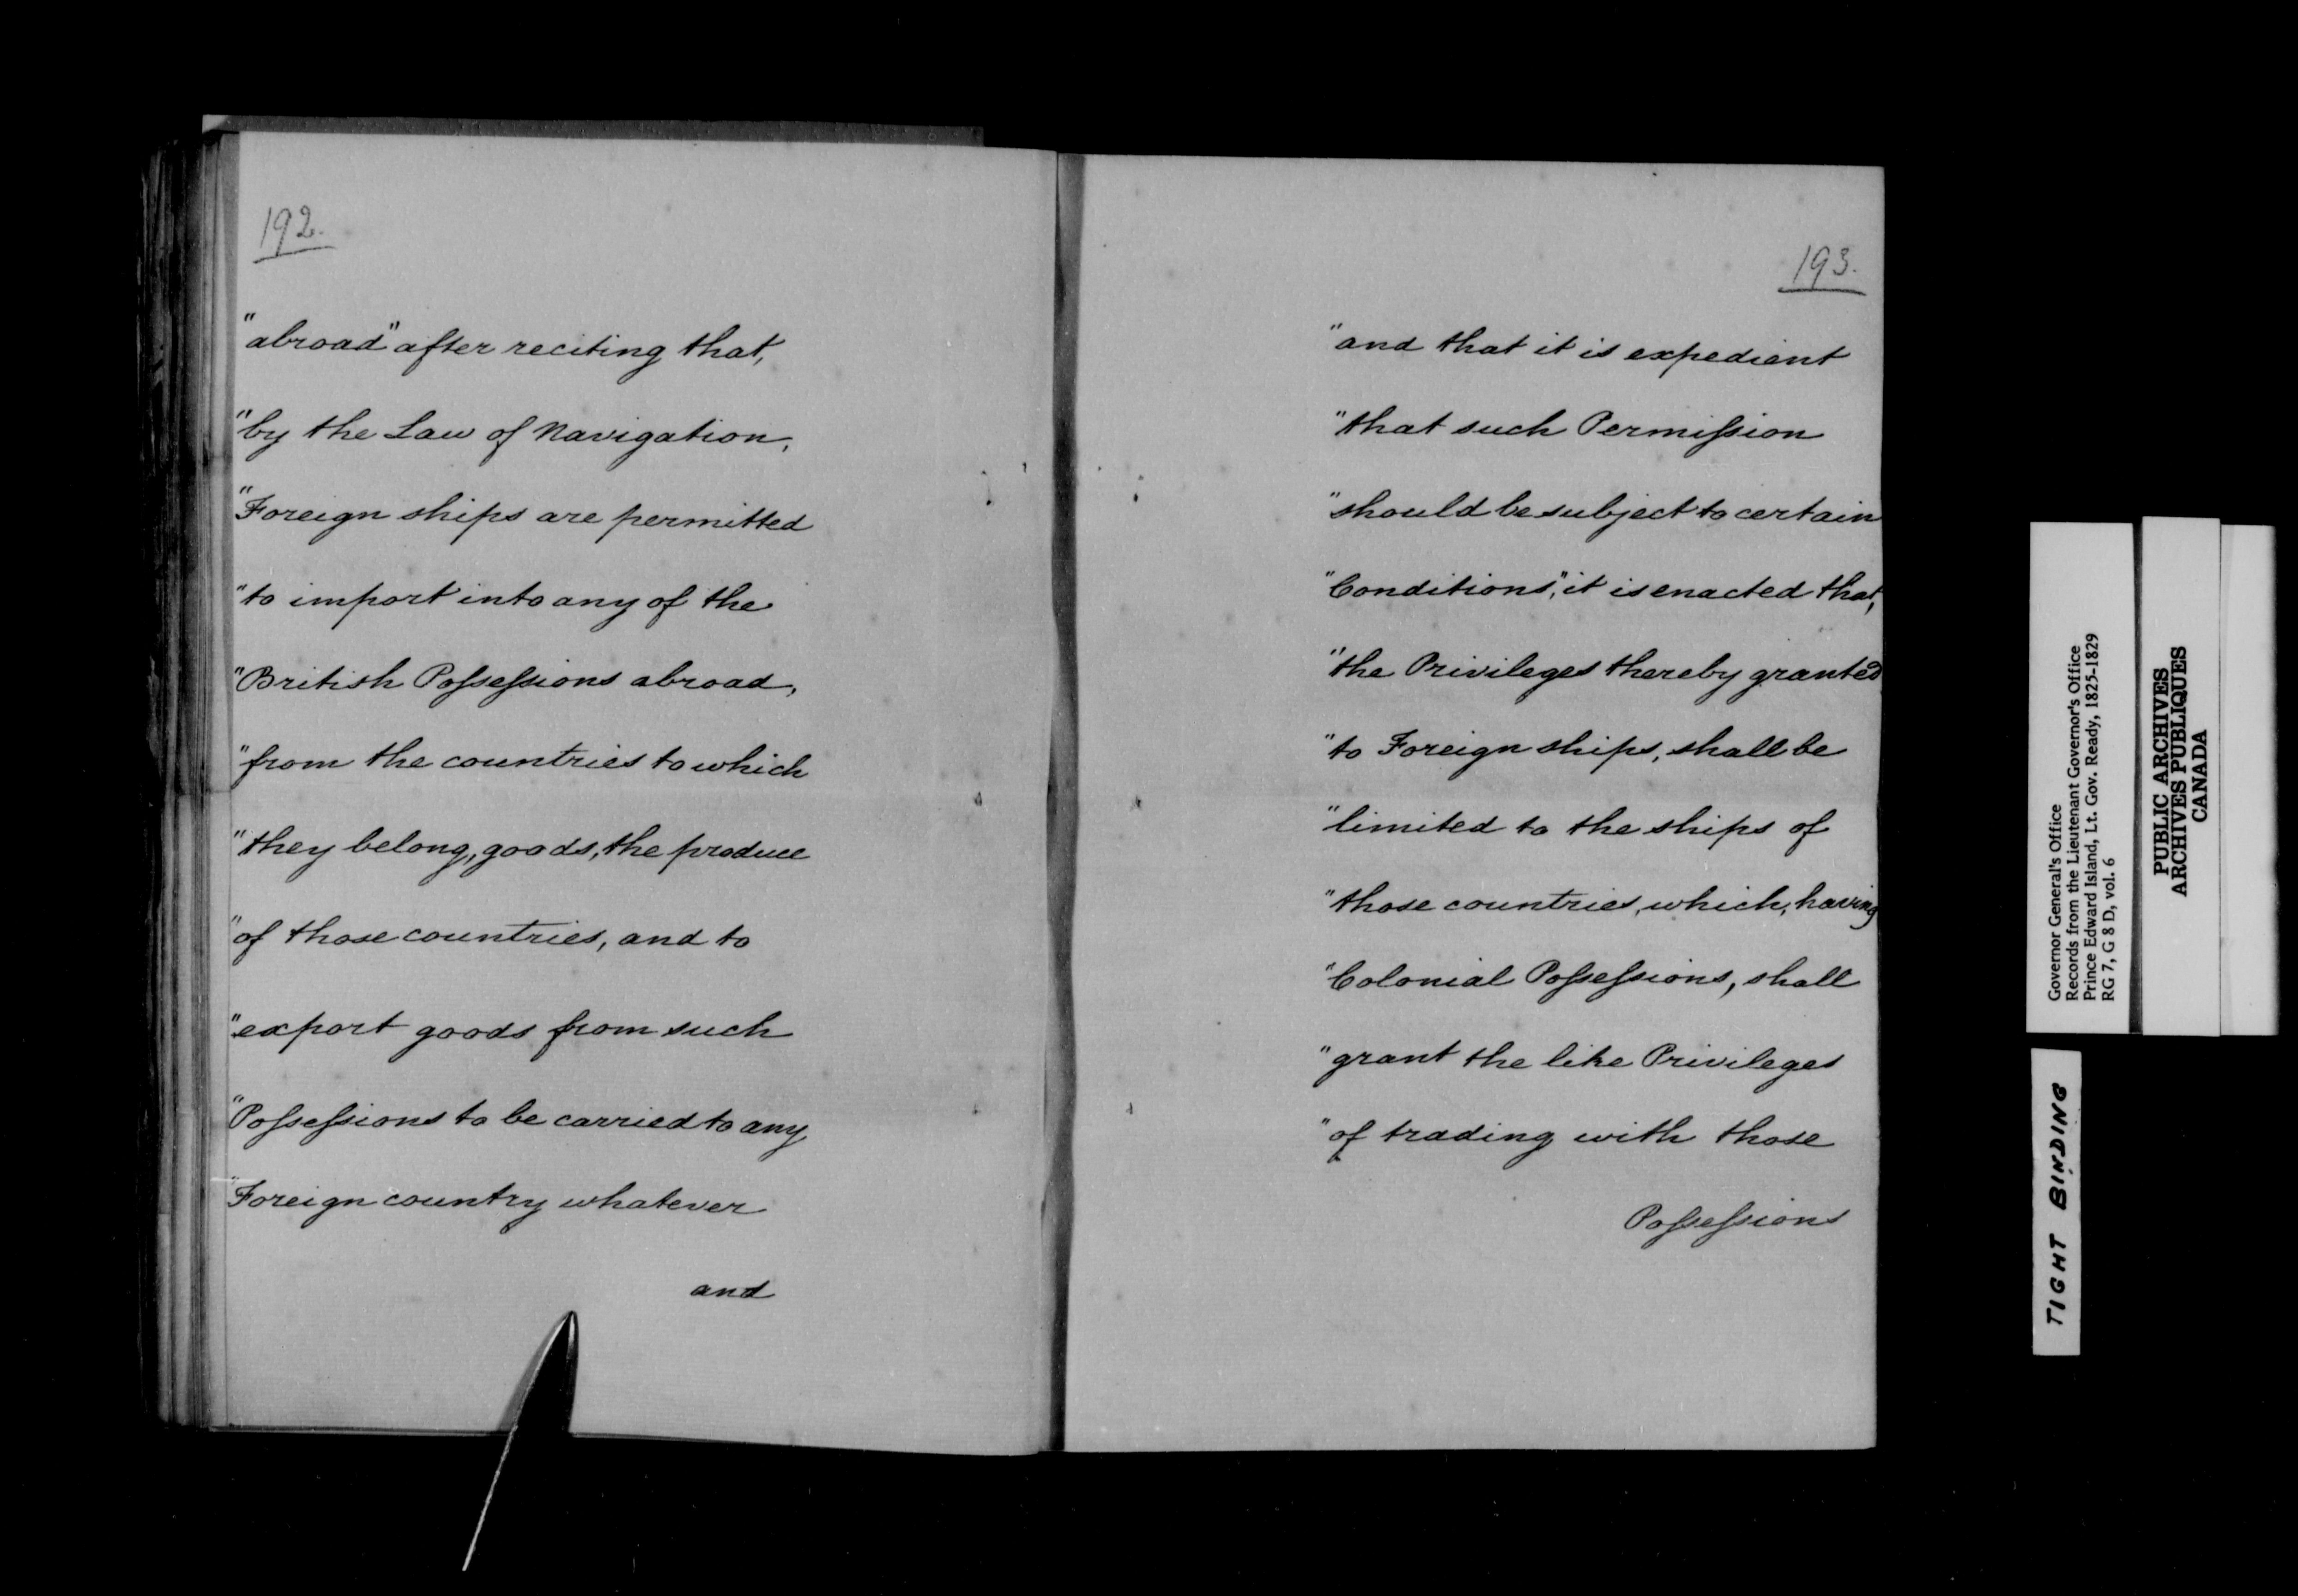 192.
"abroad" after reciting that,
"by the Law of Navigation,
"Foreign ships are permitted
"to import into any of the
"British Poſseſsions abroad,
"from the countries to which
"they belong, goods, the produce
"of those countries, and to
"export goods from such
"Poſseſsions to be carried to any
"Foreign country whatever
and
193.
"and that it is expedient
"that such Permiſsion
"should be subject to certain
"Conditions", it is enacted that,
"the Privileges thereby granted
"to Foreign ships, shall be
"limited to the ships of
"those countries, which, having
"Colonial Poſseſsions, shall
"grant the like Privileges
"of trading with those
Poſseſsions
Governor General's Office
Records from the Lieutenant Governor's Office
Prince Edward Island, Lt. Gov. Ready, 1825-1829
RG 7, G 8 D, vol. 6
PUBLIC ARCHIVES
ARCHIVES PUBLIQUES
CANADA
TIGHT BINDING